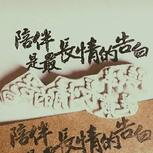 陪伴
是最長情的告白
陪伴
是最長情的告白